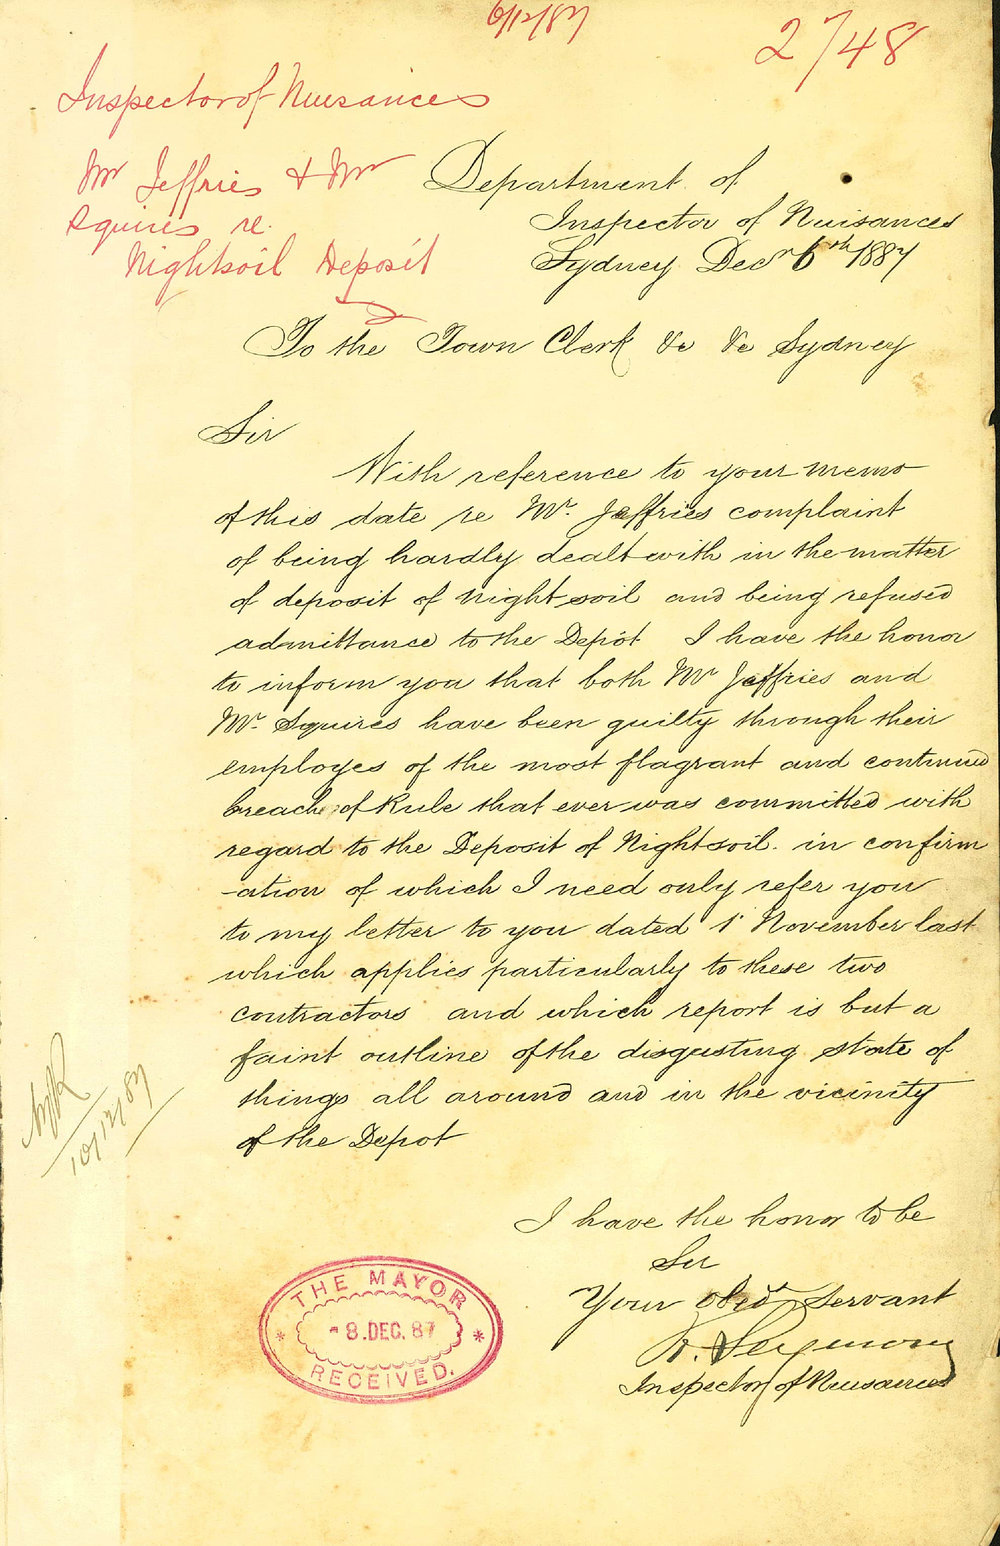 6/12/87
2748
Inspector of Nuisances
Mr Jeffries & Mr
Squires re.
Nightsoil Deposit
Department of
Inspector of Nuisances
Sydney Decr 6th 1887
To the Town Clerk &c &c Sydney
Sir
With reference to your memo
of this date re Mr. Jeffries complaint
of being hardly dealt with in the matter
of deposit of night soil and being refused
admittance to the Depôt I have the honor
to inform you that both Mr Jeffries and
Mr. Squires have been guilty through their
employes of the most flagrant and continued
breach of Rule that ever was committed with
regard to the Deposit of Nightsoil. in confirm
-ation of which I need only refer you
to my letter to you dated 1st November last
which applies particularly to these two
contractors and which report is but a
faint outline of the disgusting state of
things all around and in the vicinity
of the Depot
I have the honor to be
Sir
Your Obedt Servant
Seymour
Inspector of Nuisances
10/12/87
THE MAYOR
* - 8. DEC. 87 *
RECEIVED.